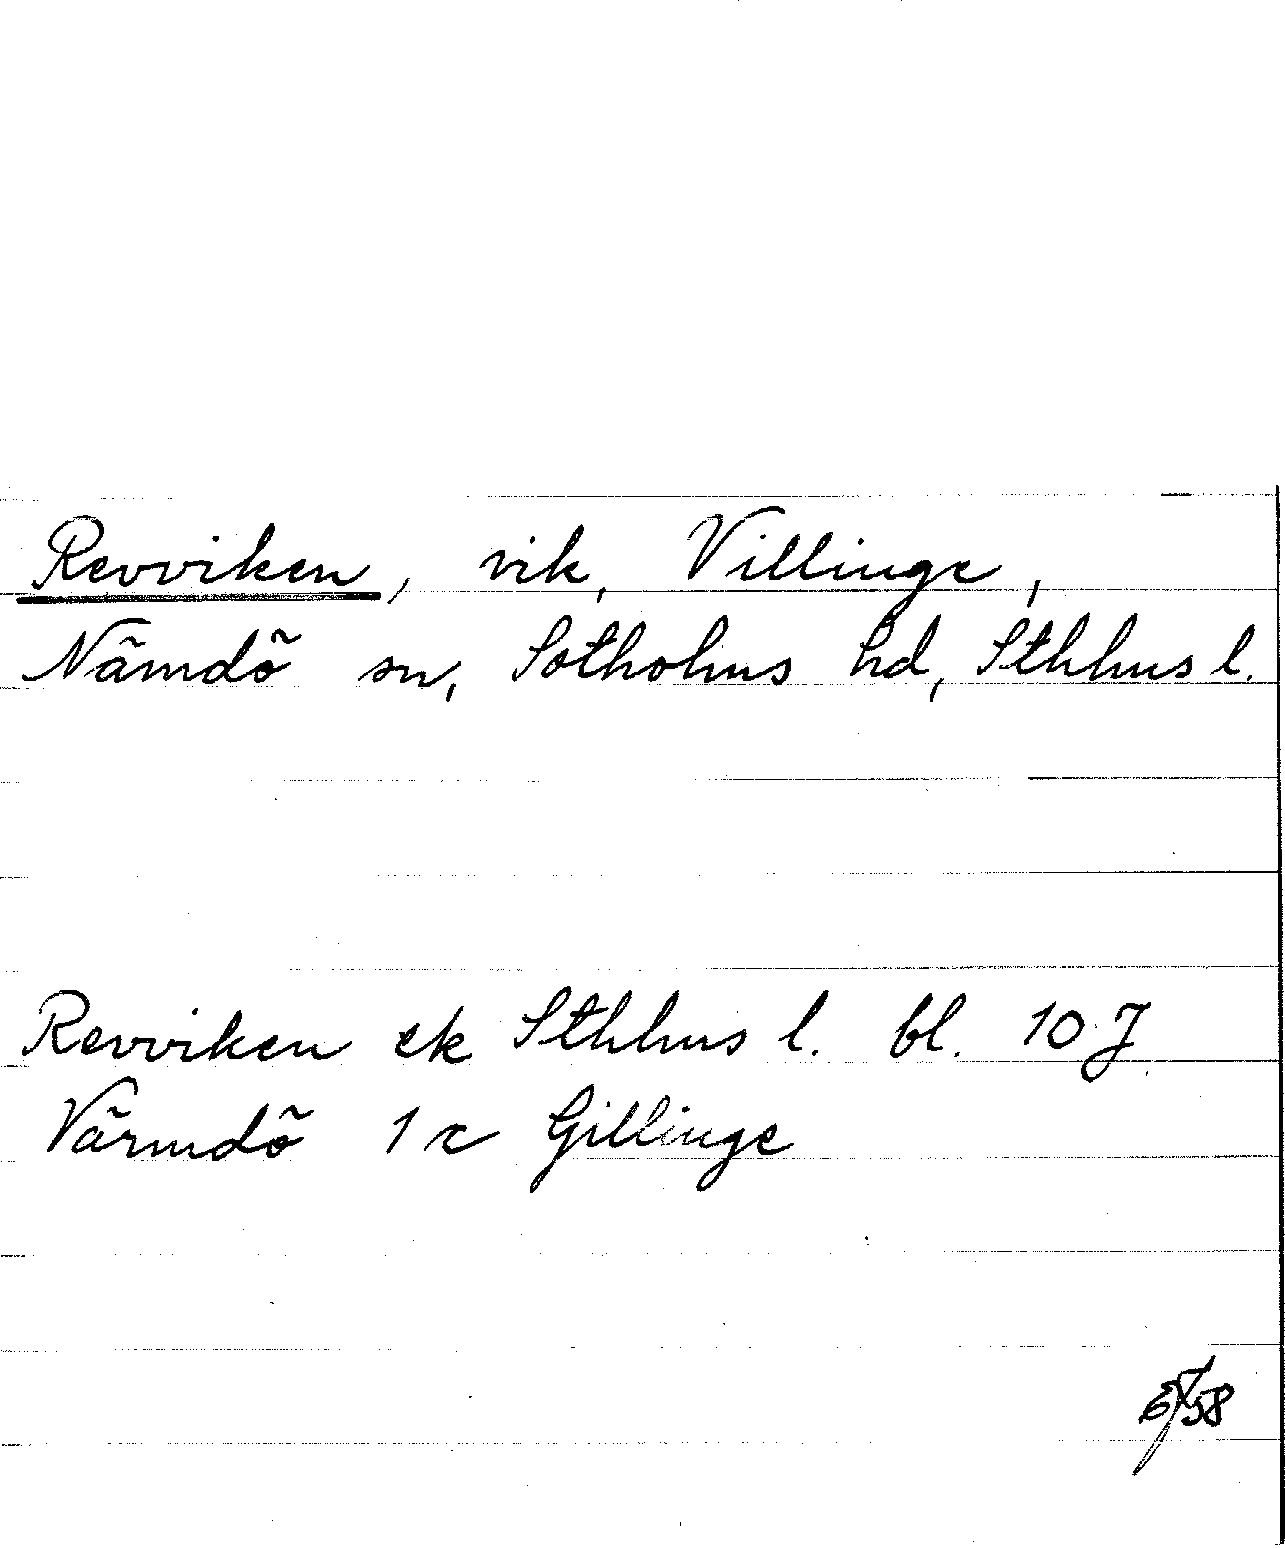 Revviken, vik, Villinge,
Nämdö sn, Sotholms hd, Sthlms l.
Revviken ek Sthlms l. bl. 10 J
Värmdö 1 c Gillinge